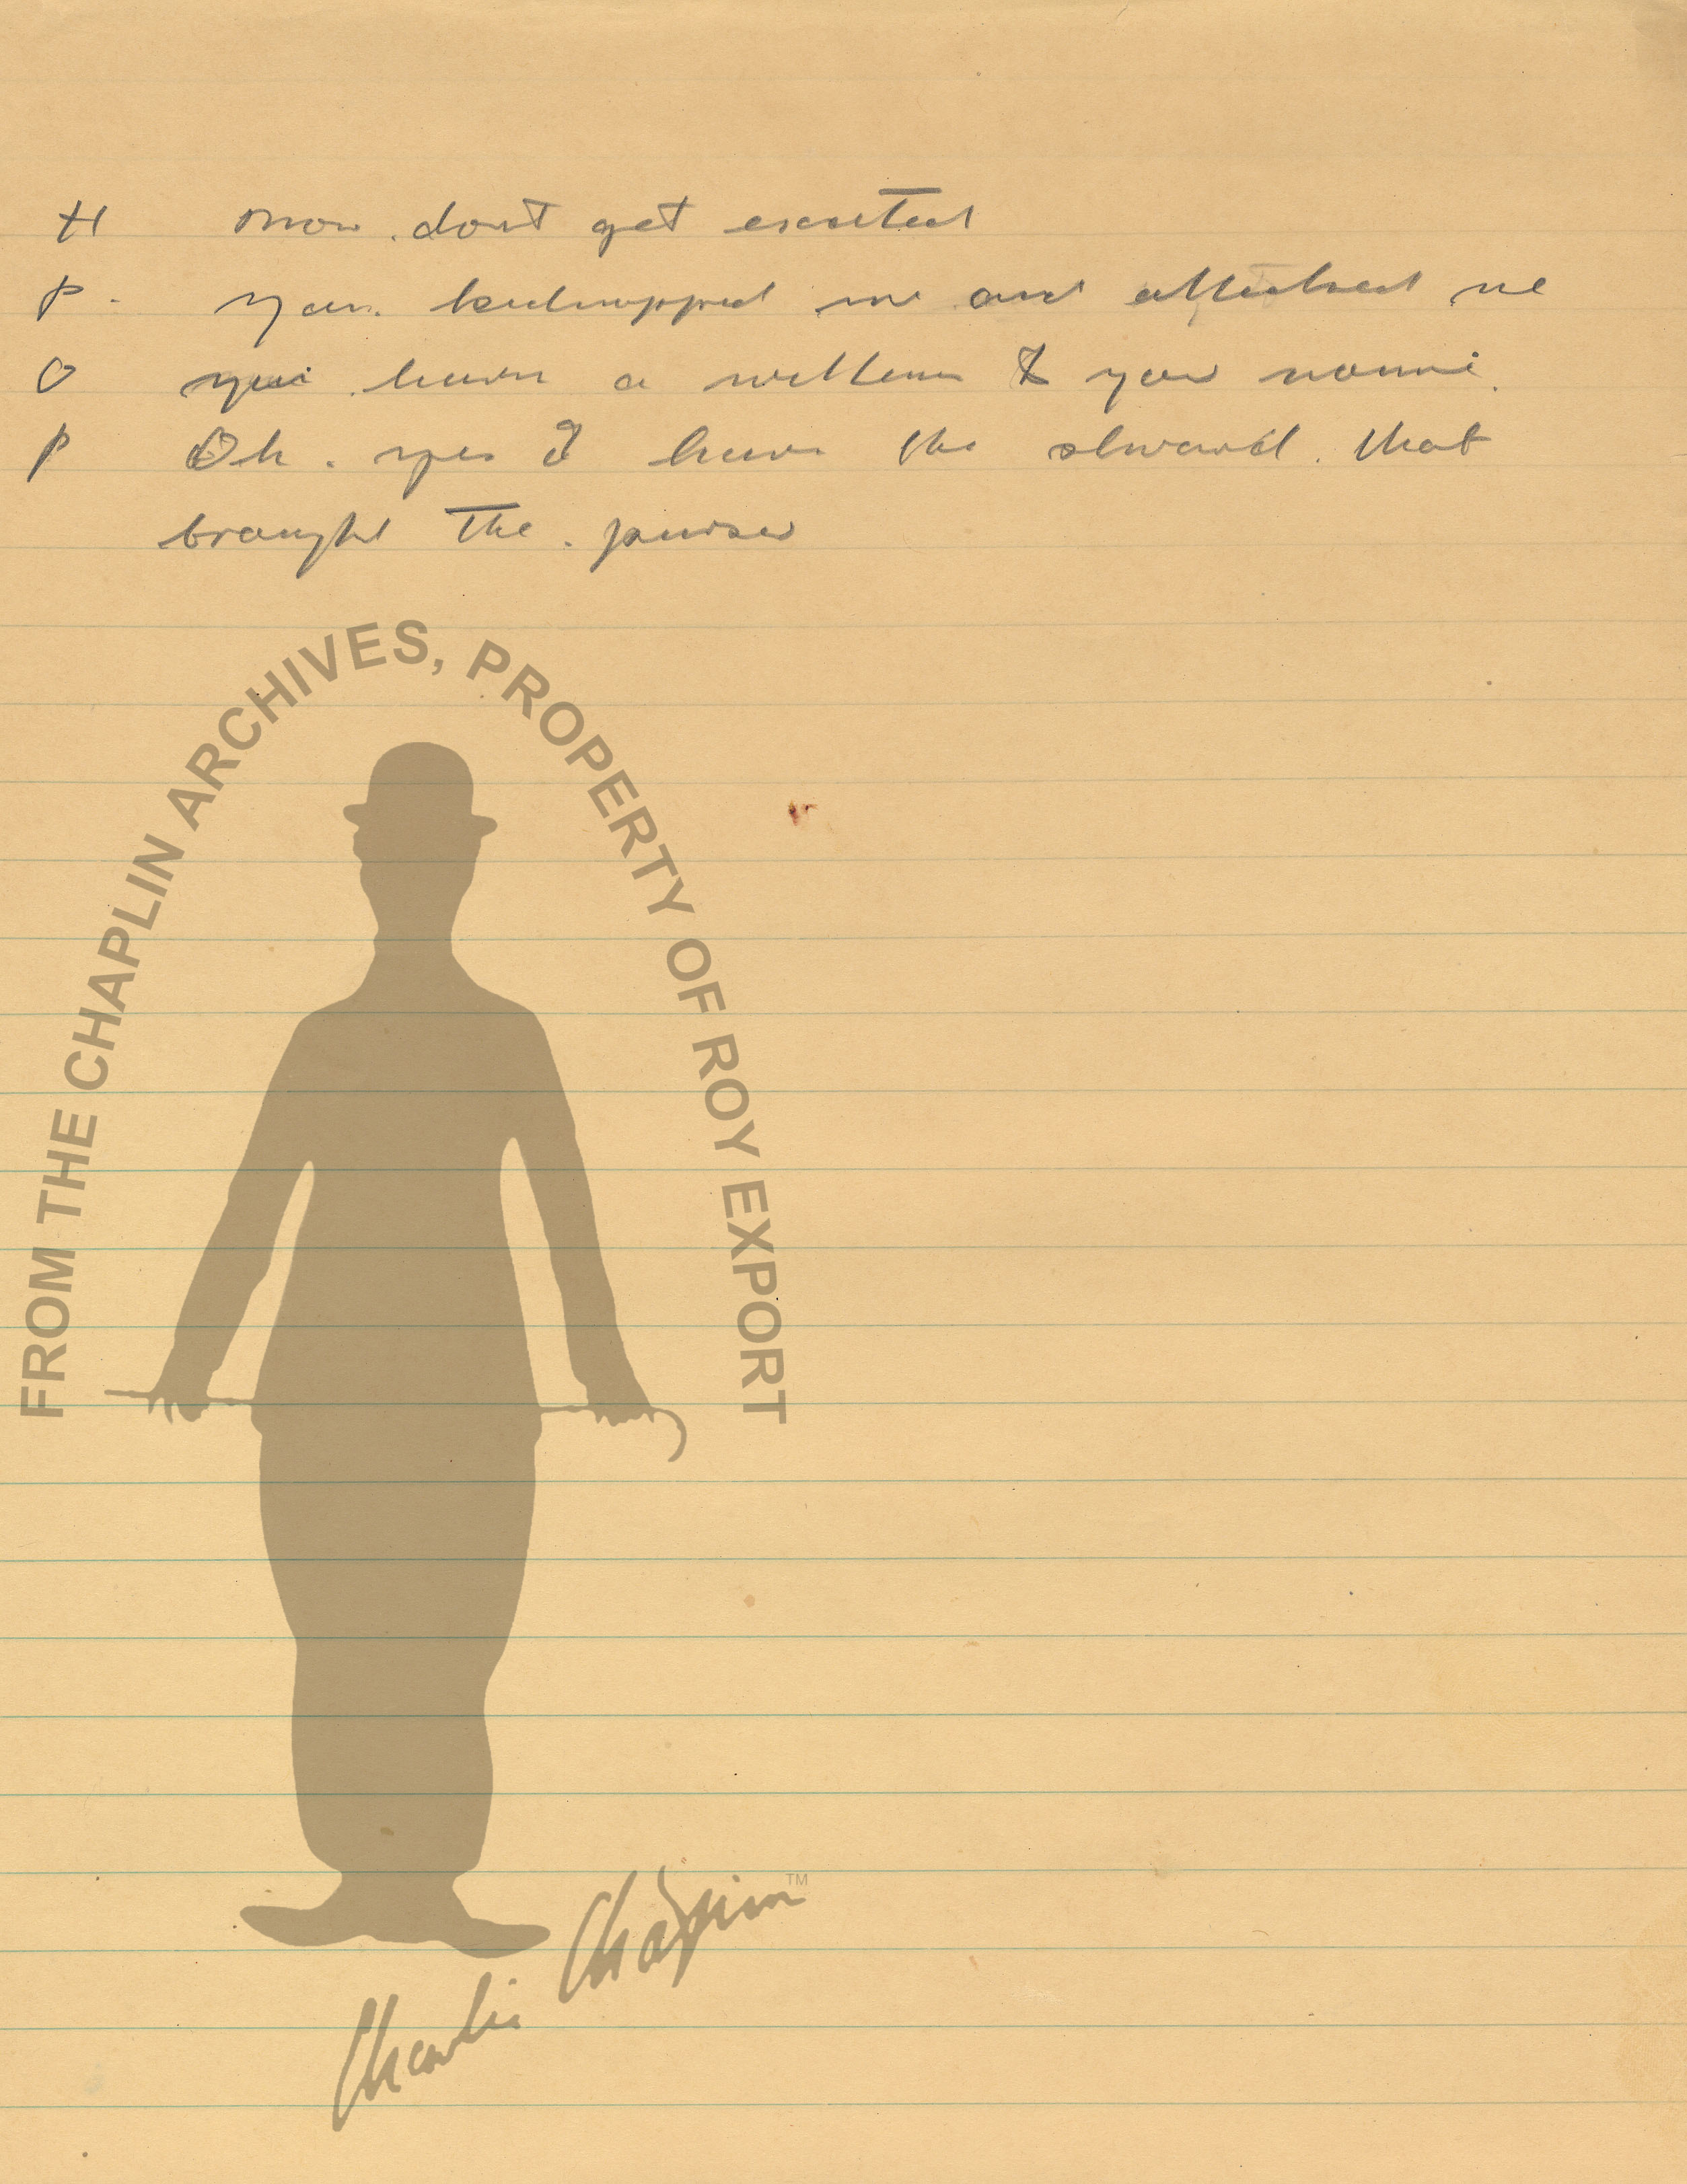 H Now . dont get excited
P - You kidnapped me and attacked me
O you have a witness to your
P Oh . yes I have the steward . that
brought the . purser
FROM THE CHAPLIN ARCHIVES, PROPERTY OF ROY EXPORT
Charlie Chaplin TM